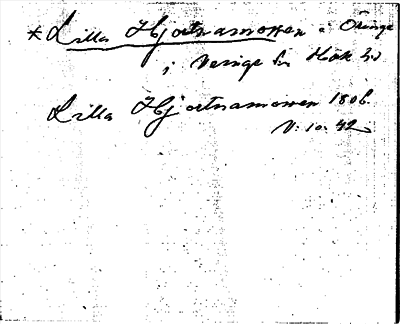 * Lilla Hjortnamossen i Öringe
i Veinge sn Hök hd
Lilla Hjortnamossen 1806.
V: 10: 42